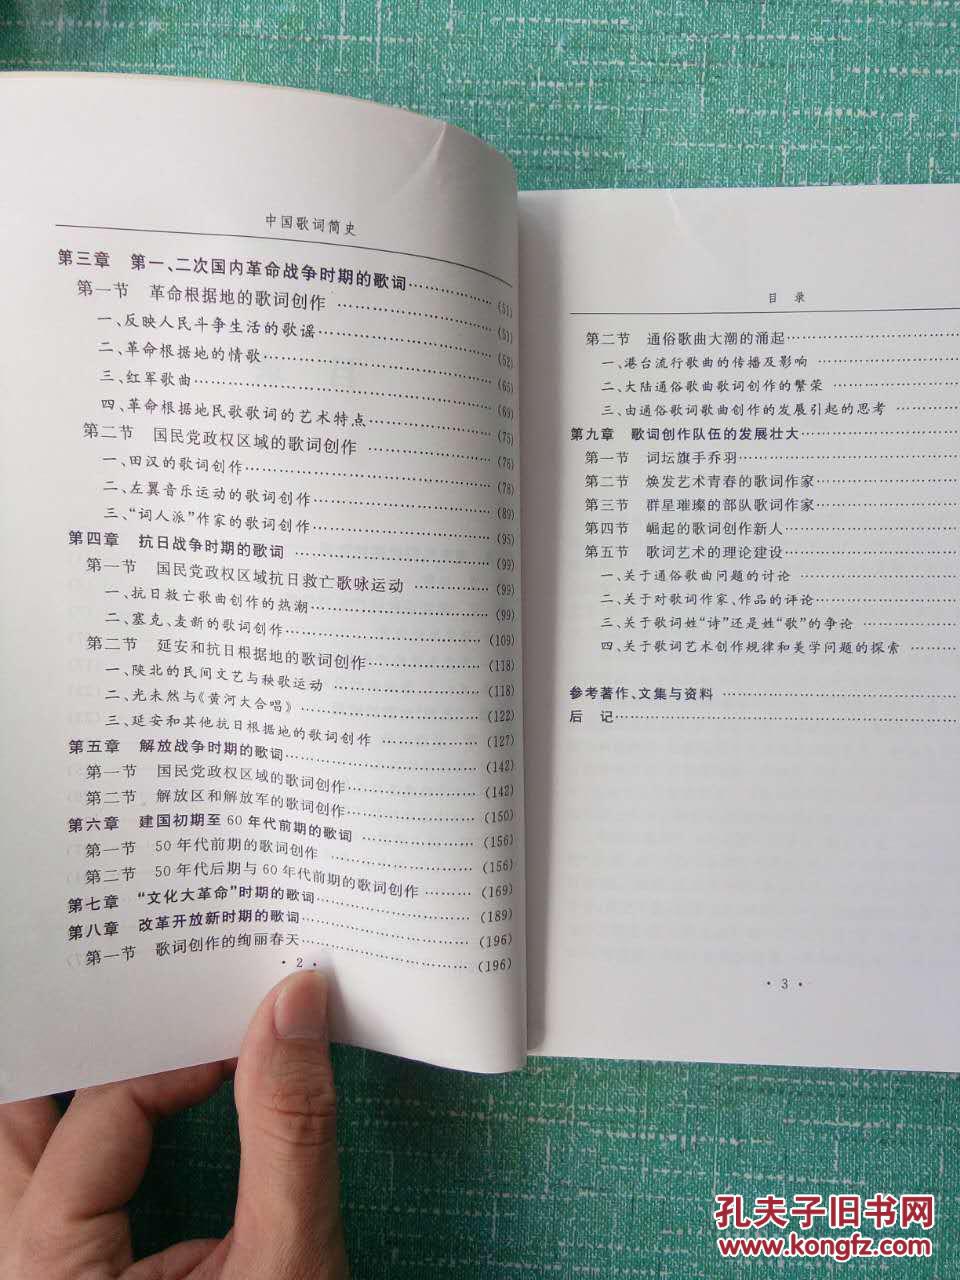 中国歌词简史
第三章 第一、二次国内革命战争时期的歌词………………(51)
第一节 革命根据地的歌词创作………………(51)
一、反映人民斗争生活的歌谣………………(52)
二、革命根据地的情歌………………(65)
三、红军歌曲………………(69)
四、革命根据地民歌歌词的艺术特点………………(75)
第二节 国民党政权区域的歌词创作………………(76)
一、田汉的歌词创作………………(78)
二、左翼音乐运动的歌词创作………………(89)
三、“词人派”作家的歌词创作………………(95)
第四章 抗日战争时期的歌词………………(99)
第一节 国民党政权区域抗日救亡歌咏运动………………(99)
一、抗日救亡歌曲创作的热潮………………(99)
二、塞克、麦新的歌词创作………………(109)
第二节 延安和抗日根据地的歌词创作………………(118)
一、陕北的民间文艺与秧歌运动………………(118)
二、光未然与《黄河大合唱》………………(122)
三、延安和其他抗日根据地的歌词创作………………(127)
第五章 解放战争时期的歌词………………(142)
第一节 国民党政权区域的歌词创作………………(142)
第二节 解放区和解放军的歌词创作………………(150)
第六章 建国初期至60年代前期的歌词………………(156)
第一节 50年代前期的歌词创作………………(156)
第二节 50年代后期与60年代前期的歌词创作………(169)
第七章 “文化大革命”时期的歌词………………(189)
第八章 改革开放新时期的歌词………………(196)
第一节 歌词创作的绚丽春天………………(196)
·2·
目 录
第二节 通俗歌曲大潮的涌起………………
一、港台流行歌曲的传播及影响………………
二、大陆通俗歌曲歌词创作的繁荣………………
三、由通俗歌词歌曲创作的发展引起的思考………
第九章 歌词创作队伍的发展壮大………………
第一节 词坛旗手乔羽………………
第二节 焕发艺术青春的歌词作家………………
第三节 群星璀璨的部队歌词作家………………
第四节 崛起的歌词创作新人………………
第五节 歌词艺术的理论建设………………
一、关于通俗歌曲问题的讨论………………
二、关于对歌词作家、作品的评论………………
三、关于歌词姓“诗”还是姓“歌”的争论………………
四、关于歌词艺术创作规律和美学问题的探索………
参考著作、文集与资料………………
后 记………………
·3·
孔夫子旧书网
www.kongfz.com